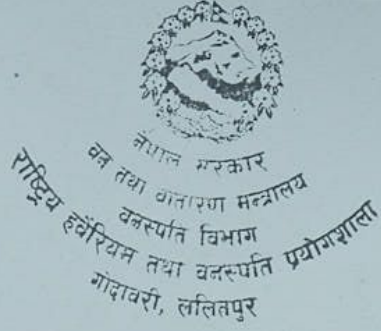 नेपाल सरकार
वन तथा वातारण मन्त्रालय
वनस्पति विभाग
राष्ट्रिय हर्वेरियम तथा वनस्पति प्रयोगशाला
गोदावरी, ललितपुर